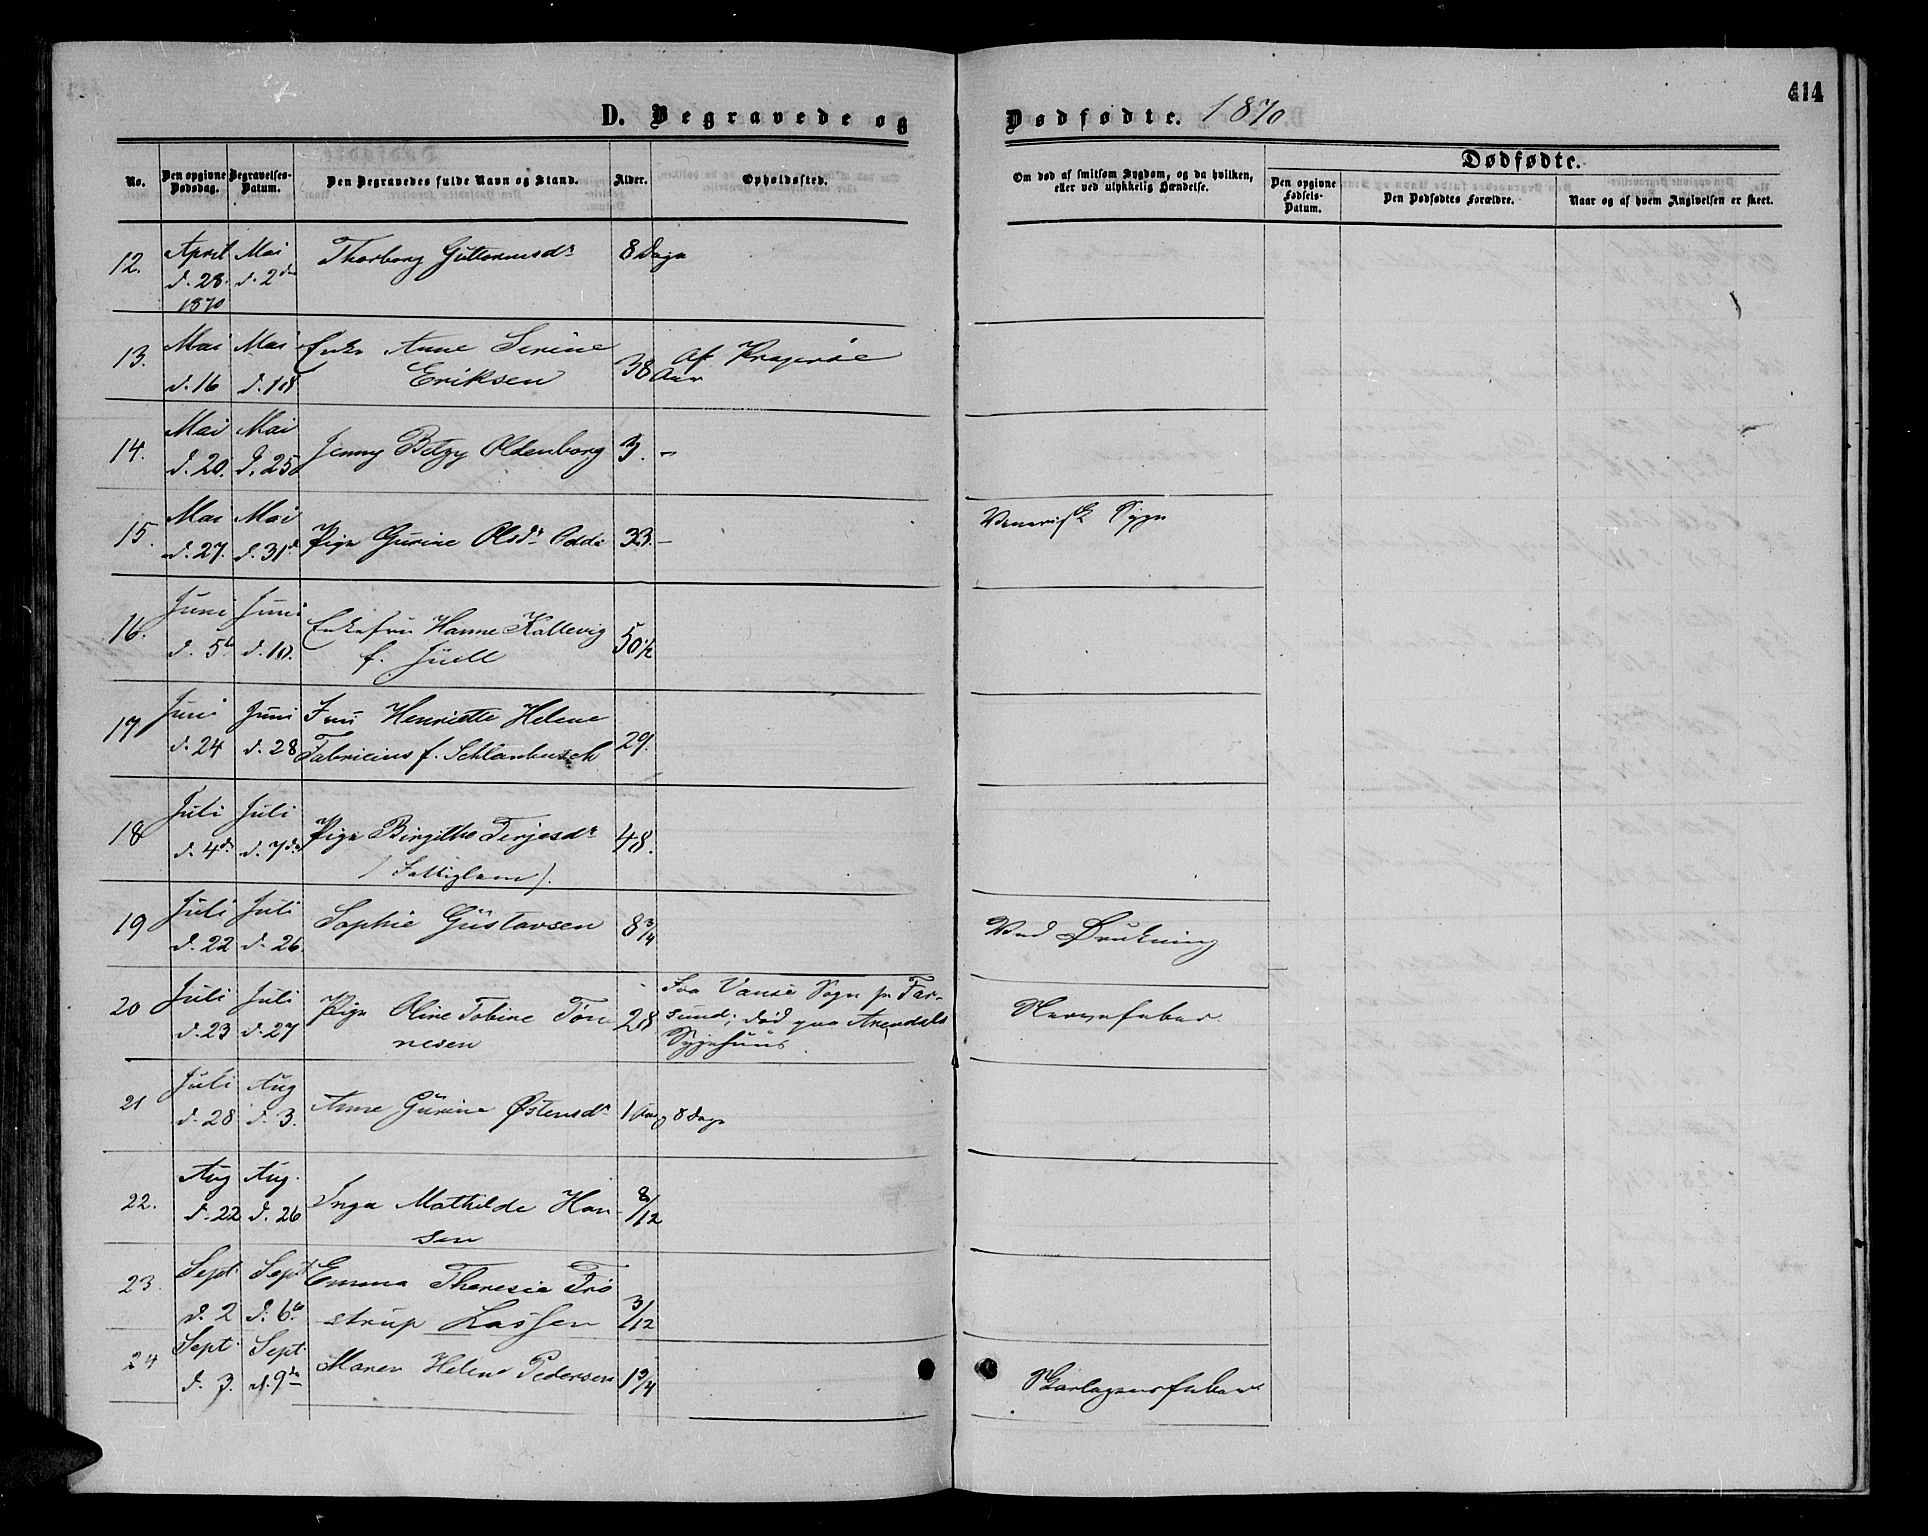 414
D. Begravede og Dødfødte. 1870
No. Den opgivne Dødsdag. Begravelses-Datum. Den Begravedes fulde Navn og Stand. Alder. Opholdssted. Om død af smitsom Sygdom, og da hvilken, eller ved ulykkelig Hændelse. Dødfødte.
Den opgivne Fødsels-Datum. Den Dødfødtes Forældre. Naar og af hvem Angivelsen er skeet.
12. April d. 28. 1870 Mai d. 2de Thorborg Guttormsdr 8 Dage
13. Mai d. 16 Mai d. 18 Enke Anne Serine Eriksen 38 Aar Af Kragerøe
14. Mai d. 20. Mai d. 25 Jenny Betzy Oldenborg 3. —
15. Mai d. 27. Mai d. 31d Pige Gurine Olsdr Odde 33. — Venerisk Syge
16. Juni d. 5te Juni d. 10. Enkefru Hanne Kallevig f. Juell 50 1/2
17 Juni d. 24 Juni d. 28 Fru Henriette Helene Fabricius f. Schlanbusch 29.
18 Juli d. 4de Juli d. 7de Pige Birgithe Terjesdr (Fattiglem). 48.
19 Juli d. 22 Juli d. 26. Sophie Gustavsen 8 3/4 Ved Drukning
20 Juli d. 23 Juli d. 27 Pige Oline Tobine Tönnesen 28 Fra Vanse Sogn pr Farsund; død paa Arendals Sygehuus. Nervefeber.
21 Juli d. 28 Aug d. 3. Anne Gurine Østensdr 1 Aar 8 Dage
22. Aug d. 22 Aug. d. 26 Inga Mathilde Hansen 8/12
23. Sept. d. 2 Sept d. 6te Emma Theresie Trøstrup Lassen 3/12
24 Sept. d. 3. Sept. d. 9de Maren Helene Pedersen 1 3/4 Skarlagensfeber